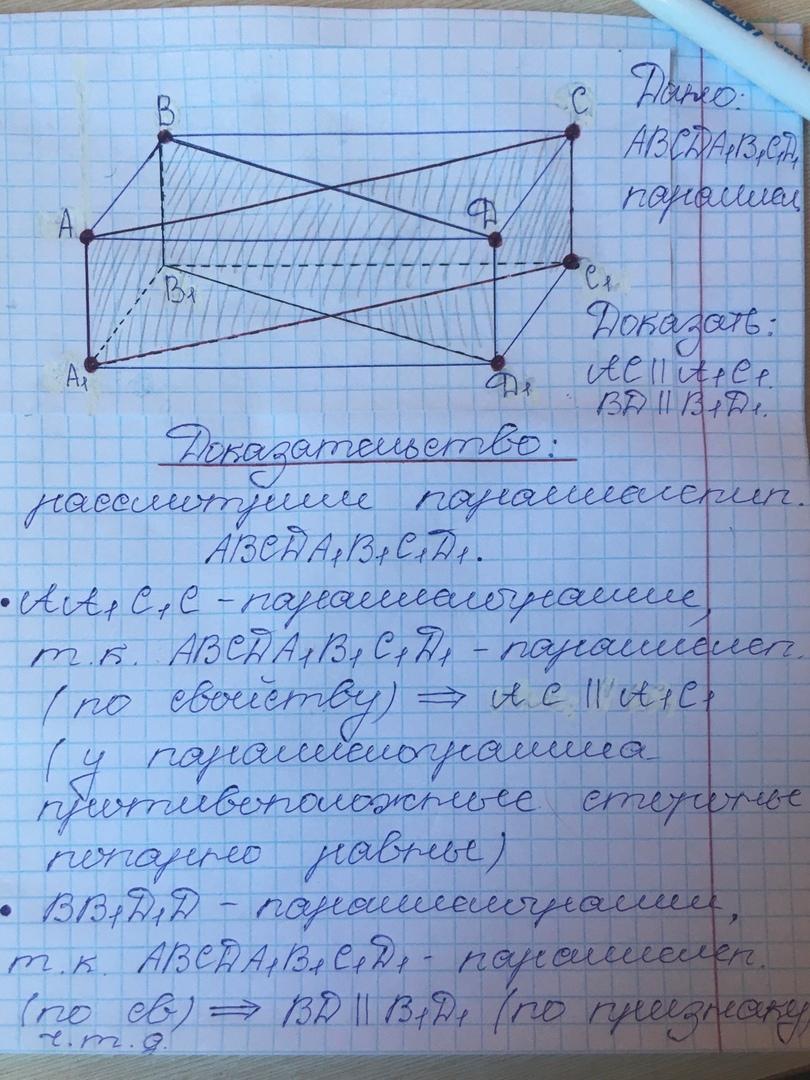 B
C
A
D
B₁
C₁
A₁
D₁
Дано:
ABCDA₁B₁C₁D₁
параллел
Доказать:
AC || A₁C₁.
BD || B₁D₁.
Доказательство:
рассмотрим параллелепип.
ABCDA₁B₁C₁D₁.
• AA₁C₁C - параллелограмм,
т.к. ABCDA₁B₁C₁D₁ - параллелеп.
(по свойству) ⇒ AC || A₁C₁
(у параллелограмма
противоположные стороны
попарно равны)
• BB₁D₁D - параллелограмм,
т.к. ABCDA₁B₁C₁D₁ - параллелеп.
(по св) ⇒ BD || B₁D₁ (по признаку
ч.т.д.